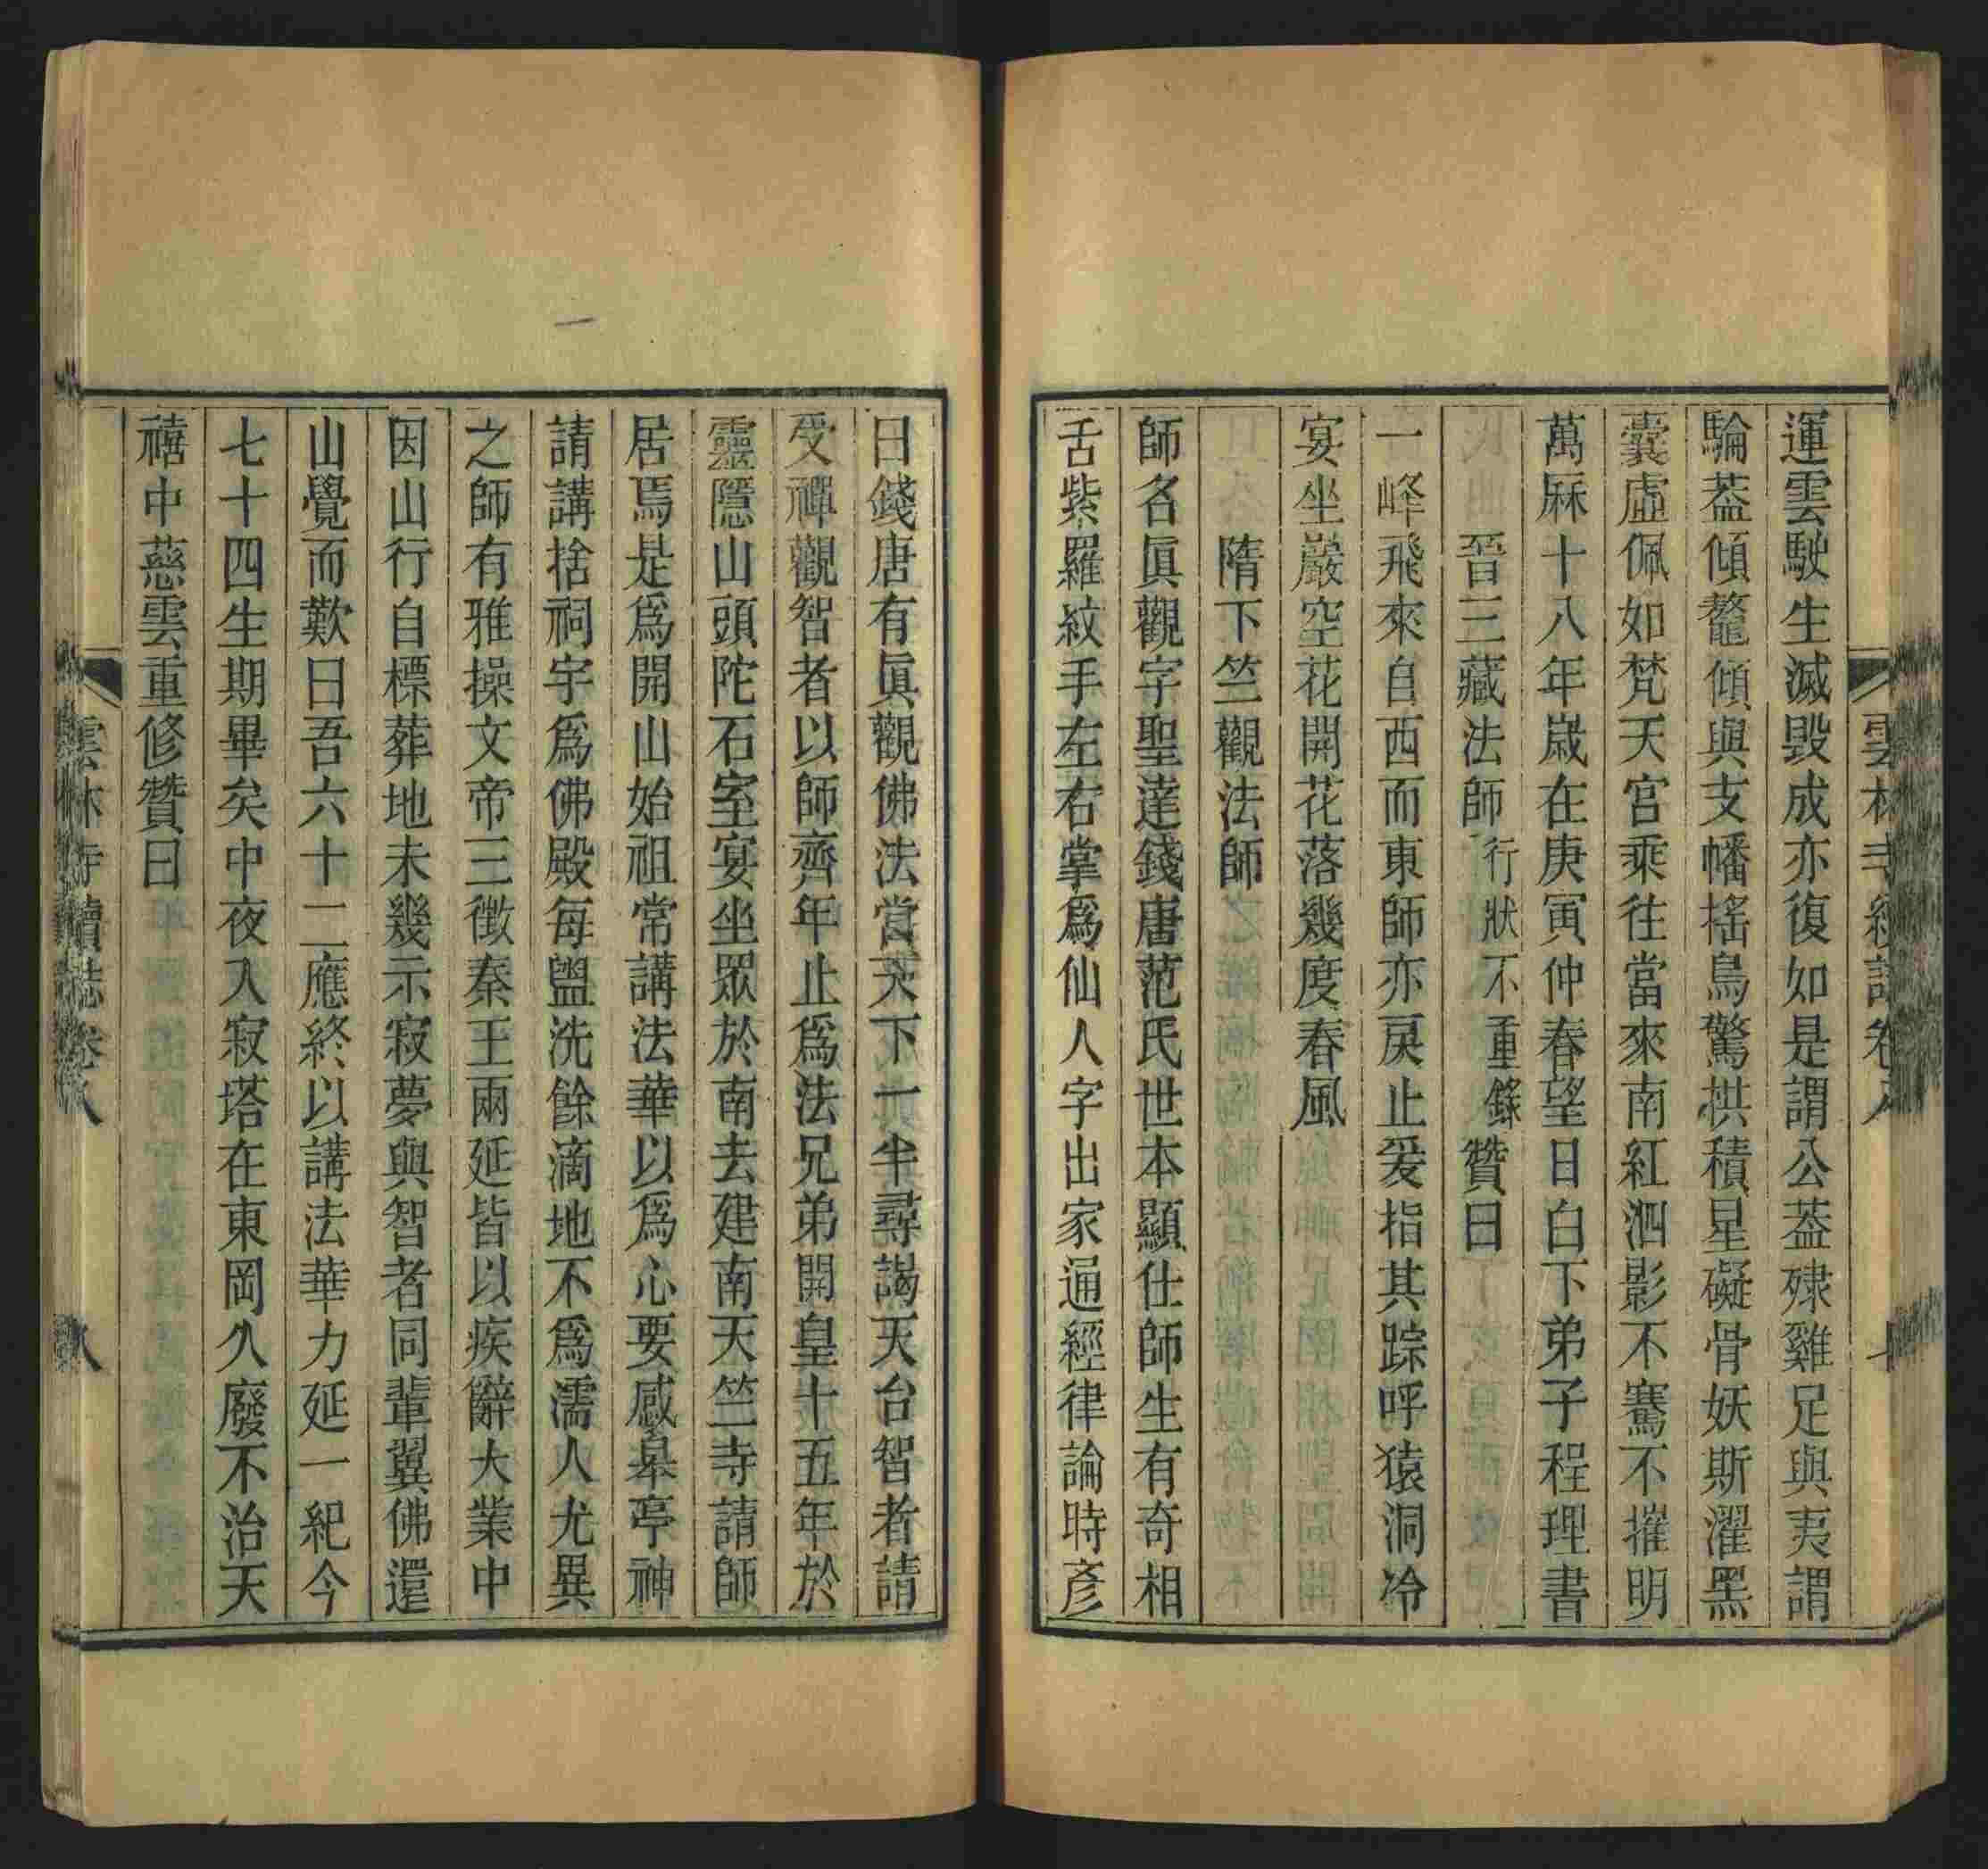 運雲駛生滅毀成亦復如是謂公葢殔雞足與夷謂
騟葢傾鼇傾與支幡搖鳥驚拱積星礙骨妖斯濯黑
囊虛佩如梵天宮乘往當來南紅泗影不騫不摧明
萬厤十八年歲在庚寅仲春望日白下弟子程理書
晉三藏法師行狀不重錄贊曰
一峰飛來自西而東師亦戾止爰指其踪呼猿洞冷
宴坐巖空花開花落幾度春風
隋下竺觀法師
師名眞觀字聖達錢唐范氏世本顯仕師生有奇相
舌紫羅紋手左右掌爲仙人字出家通經律論時彥
曰錢唐有眞觀佛法當天下一半尋謁天台智者請
受禪觀智者以師齊年止爲法兄弟開皇十五年於
靈隱山頭陀石室宴坐眾於南去建南天竺寺請師
居焉是爲開山始祖常講法華以爲心要感皋亭神
請講捨祠宇爲佛殿每盥洗餘滴地不爲濡人尤異
之師有雅操文帝三徵秦王兩延皆以疾辭大業中
因山行自標葬地未幾示寂夢與智者同輩翼佛還
山覺而歎曰吾六十二應終以講法華力延一紀今
七十四生期畢矣中夜入寂塔在東岡久廢不治天
禧中慈雲重修贊曰
雲林寺續誌卷八
八